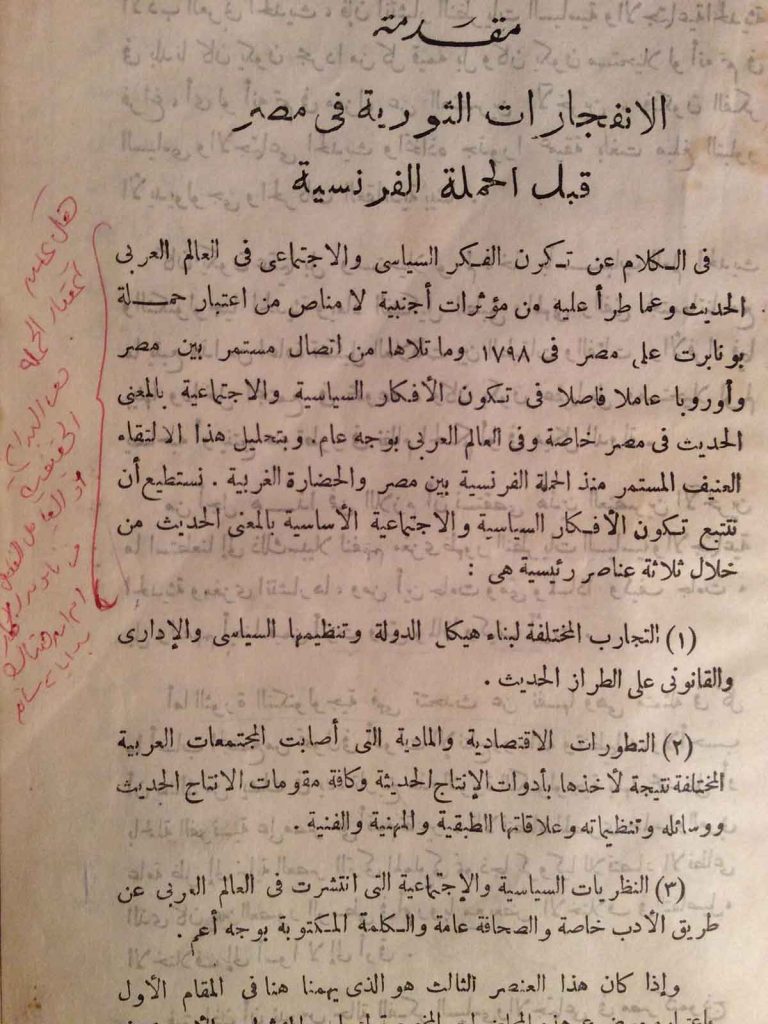 مقدمة
الانفجارات الثورية فى مصر
قبل الحملة الفرنسية
فى الكلام عن تكون الفكر السياسى والاجتماعى فى العالم العربى
الحديث وعما طرأ عليه من مؤثرات أجنبية لا مناص من اعتبار حملة
بونابرت على مصر فى ١٧٩٨ وما تلاها من اتصال مستمر بين مصر
وأوروبا عاملا فاصلا فى تكون الأفكار السياسية والاجتماعية بالمعنى
الحديث فى مصر خاصة وفى العالم العربى بوجه عام . وبتحليل هذا الالتقاء
العنيف المستمر منذ الحملة الفرنسية بين مصر والحضارة الغربية . نستطيع أن
نتتبع تكون الأفكار السياسية والاجتماعية الأساسية بالمعنى الحديث من
خلال ثلاثة عناصر رئيسية هى :
(١) التجارب المختلفة لبناء هيكل الدولة وتنظيمها السياسى والإدارى
والقانونى على الطراز الحديث .
(٢) التطورات الاقتصادية والمادية التى أصابت المجتمعات العربية
المختلفة نتيجة لأخذها بأدوات الإنتاج الحديثة وكافة مقومات الانتاج الحديث
ووسائله وتنظيماته وعلاقاتها الطبقية والمهنية والفنية .
(٣) النظريات السياسية والإجتماعية التى انتشرت فى العالم العربى عن
طريق الأدب خاصة والصحافة عامة والكلمة المكتوبة بوجه أعم .
وإذا كان هذا العنصر الثالث هو الذى يهمنا هنا فى المقام الأول